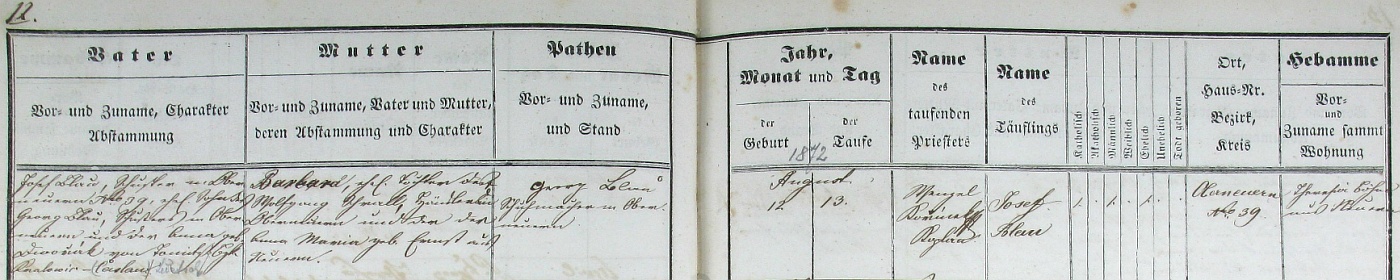 12.
Vater
Vor- und Zuname, Charakter
Abstammung
Mutter
Vor- und Zuname, Vater und Mutter,
deren Abstammung und Charakter
Pathen
Vor- und Zuname,
und Stand
Jahr,
Monat und Tag
der
Geburt
der
Taufe
1872
Name
des
taufenden
Priesters
Name
des
Täuflings
Katholisch
Akatholisch
Männlich
Weiblich
Ehelich
Unehelich
Todt geboren
Ort,
Haus-Nr.
Bezirk,
Kreis
Hebamme
Vor-
und
Zuname sammt
Wohnung
Josef Blau, Schuster in Ober
neuern No 39, ehel. Sohn des
Georg Blau, Schusters in Ober
neuern und der Anna geb.
Dwořák von
Barbara, ehel. Tochter des
Wolfgang Händlers in
Oberneuern und der
Anna Maria geb. Ernst aus
Neuern.
Georg Blau
Schuhmacher in Ober
neuern
August
12 13.
Wenzel
Josef
Blau
1. 1. 1.
Oberneuern
No 39.
Theresia
aus Neuern